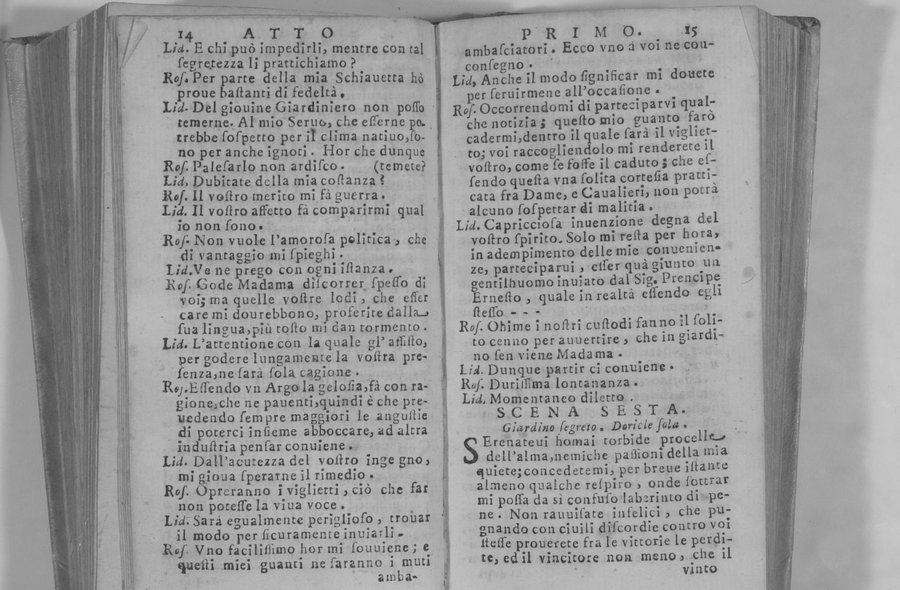 14 ATTO
Lid. E chi può impedirli, mentre con tal
segretezza li prattichiamo?
Roſ. Per parte della mia Schiauetta hò
proue baſtanti di fedeltà.
Lid. Del giouine Giardiniero non poſſo
temerne. Al mio Seruo, che eſſerne po-
trebbe ſoſpetto per il clima natiuo, ſo-
no per anche ignoti. Hor che dunque
Roſ. Paleſarlo non ardiſco. (temete?
Lid. Dubitate della mia coſtanza?
Roſ. Il voſtro merito mi fà guerra.
Lid. Il voſtro affetto fà comparirmi qual
io non ſono.
Roſ. Non vuole l'amoroſa politica, che
di vantaggio mi ſpieghi.
Lid. Ve ne prego con ogni iſtanza.
Roſ. Gode Madama diſcorrer ſpeſſo di
voi; ma quelle voſtre lodi, che eſſer
care mi dourebbono, proferite dalla
ſua lingua, più toſto mi dan tormento.
Lid. L'attentione con la quale gl'aſſiſto,
per godere lungamente la voſtra pre-
ſenza, ne ſarà ſola cagione.
Roſ. Eſſendo vn Argo la geloſia, fà con ra-
gione, che ne pauenti, quindi è che pre-
uedendo ſempre maggiori le anguſtie
di poterci inſieme abboccare, ad altra
induſtria penſar conuiene.
Lid. Dall'acutezza del voſtro ingegno,
mi gioua ſperarne il rimedio.
Roſ. Opreranno i viglietti, ciò che far
non poteſſe la viua voce.
Lid. Sarà egualmente periglioſo, trouar
il modo per ſicuramente inuiarli.
Roſ. Vno faciliſſimo hor mi ſouuiene; e
queſti miei guanti ne ſaranno i muti
amba-
PRIMO. 15
ambaſciatori. Ecco vno a voi ne con-
conſegno.
Lid, Anche il modo ſignificar mi douete
per ſeruirmene all'occaſione.
Roſ. Occorrendomi di parteciparvi qual-
che notizia; queſto mio guanto farò
cadermi, dentro il quale ſarà il vigliet-
to; voi raccogliendolo mi renderete il
voſtro, come ſe foſſe il caduto; che eſ-
ſendo queſta vna ſolita corteſia pratti-
cata fra Dame, e Caualieri, non potrà
alcuno ſoſpettar di malitia.
Lid. Capriccioſa inuenzione degna del
voſtro ſpirito. Solo mi reſta per hora,
in adempimento delle mie conuenien-
ze, parteciparui, eſſer quà giunto un
gentilhuomo inuiato dal Sig. Prencipe
Erneſto, quale in realtà eſſendo egli
ſteſſo - - -
Roſ. Ohime i noſtri cuſtodi fanno il ſoli-
to cenno per auuertire, che in giardi-
no ſen viene Madama.
Lid. Dunque partir ci conuiene.
Roſ. Duriſſima lontananza.
Lid. Momentaneo diletto.
SCENA SESTA.
Giardino ſegreto. Doricle ſola.
SErenateui homai torbide procelle
dell'alma, nemiche paſſioni della mia
quiete; concedetemi, per breue iſtante
almeno qualche reſpiro, onde ſottrar
mi poſſa da sì confuſo laberinto di pe-
ne. Non rauuiſate infelici, che pu-
gnando con ciuili diſcordie contro voi
ſteſſe prouerete fra le vittorie le perdi-
te, ed il vincitore non meno, che il
vinto